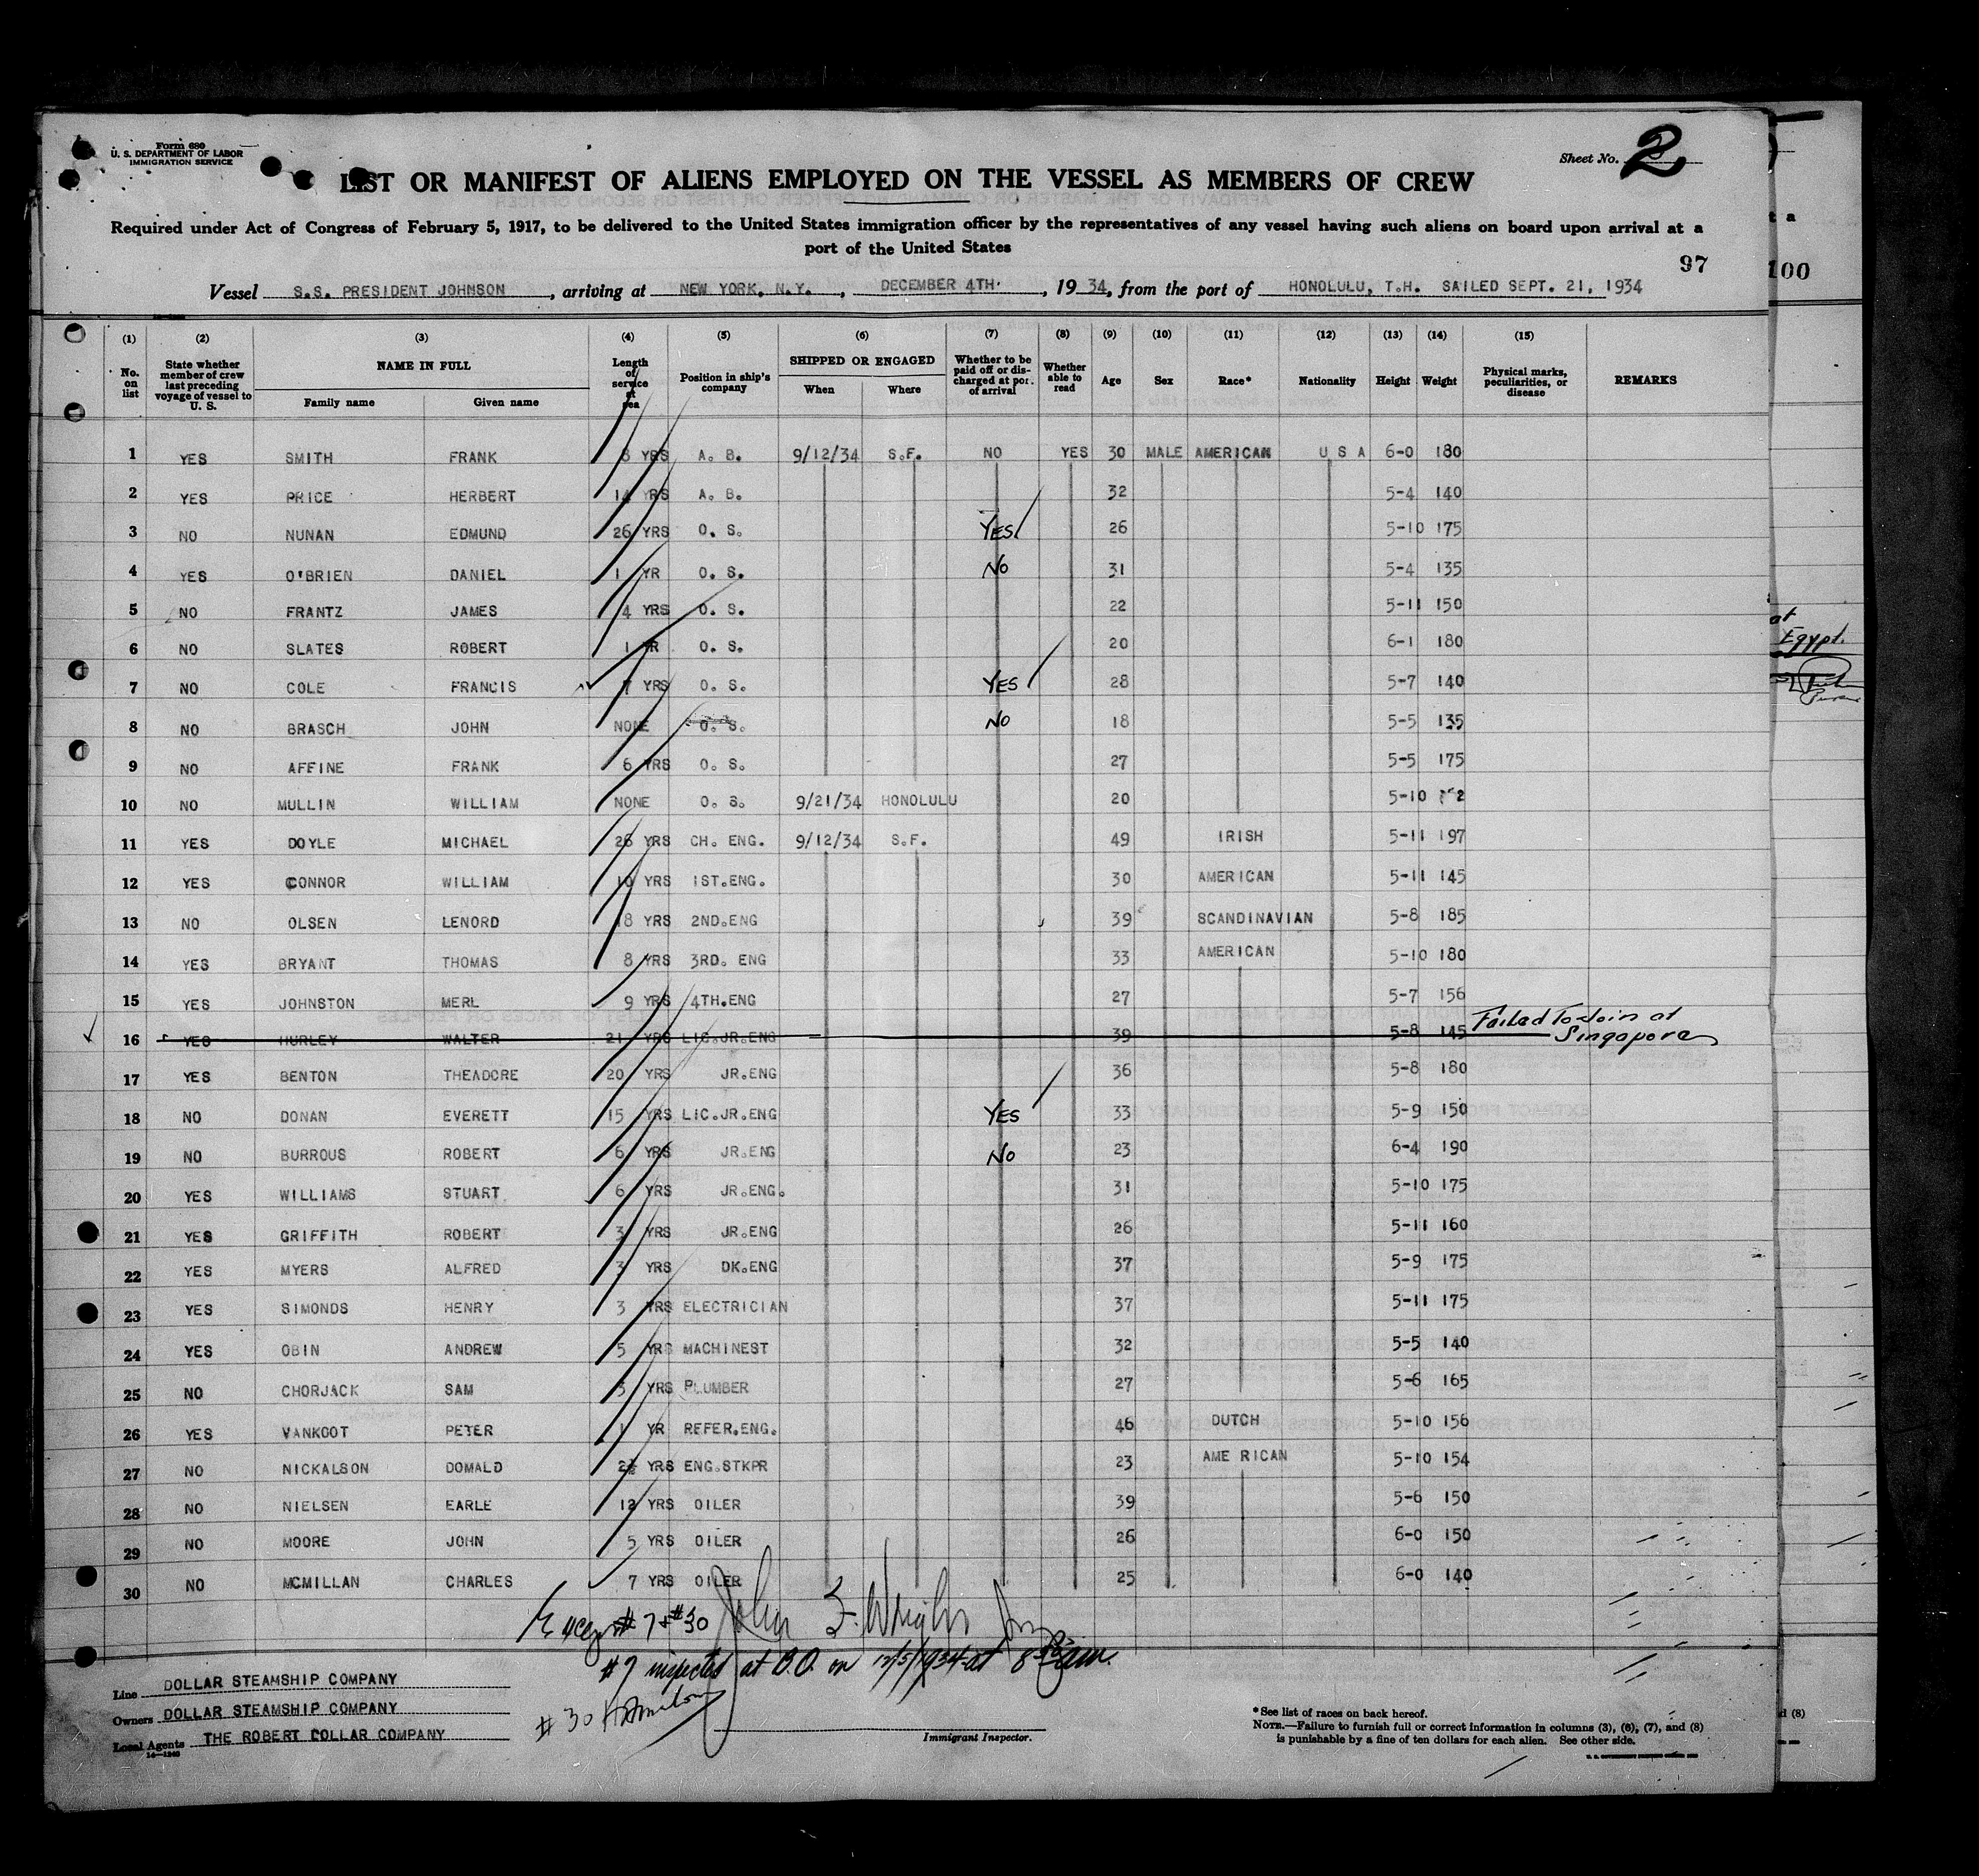 Form 680
U. S. DEPARTMENT OF LABOR
IMMIGRATION SERVICE
Sheet No. 2
LIST OR MANIFEST OF ALIENS EMPLOYED ON THE VESSEL AS MEMBERS OF CREW
Required under Act of Congress of February 5, 1917, to be delivered to the United States immigration officer by the representatives of any vessel having such aliens on board upon arrival at a
port of the United States
97
100
Vessel S.S. PRESIDENT JOHNSON, arriving at NEW YORK, N.Y., DECEMBER 4TH, 1934, from the port of HONOLULU, T.H. SAILED SEPT. 21, 1934
(1) (2) (3) (4) (5) (6) (7) (8) (9) (10) (11) (12) (13) (14) (15)
No. on list State whether member of crew last preceding voyage of vessel to U. S. NAME IN FULL Family name Given name Length of service at sea Position in ship's company SHIPPED OR ENGAGED When Where Whether to be paid off or discharged at port of arrival Whether able to read Age Sex Race* Nationality Height Weight Physical marks, peculiarities, or disease REMARKS
1 YES SMITH FRANK 8 YRS A. B. 9/12/34 S.F. NO YES 30 MALE AMERICAN U S A 6-0 180
2 YES PRICE HERBERT 14 YRS A. B. 32 5-4 140
3 NO NUNAN EDMUND 26 YRS O. S. YES 26 5-10 175
4 YES O'BRIEN DANIEL 1 YR O. S. No 31 5-4 135
5 NO FRANTZ JAMES 4 YRS O. S. 22 5-11 150
6 NO SLATES ROBERT 1 YR O. S. 20 6-1 180
7 NO COLE FRANCIS 7 YRS O. S. YES 28 5-7 140
8 NO BRASCH JOHN NONE O. S. No 18 5-5 135
9 NO AFFINE FRANK 6 YRS O. S. 27 5-5 175
10 NO MULLIN WILLIAM NONE O. S. 9/21/34 HONOLULU 20 5-10
11 YES DOYLE MICHAEL 26 YRS CH. ENG. 9/12/34 S.F. 49 IRISH 5-11 197
12 YES CONNOR WILLIAM 10 YRS 1ST.ENG. 30 AMERICAN 5-11 145
13 NO OLSEN LENORD 18 YRS 2ND.ENG 39 SCANDINAVIAN 5-8 185
14 YES BRYANT THOMAS 8 YRS 3RD. ENG 33 AMERICAN 5-10 180
15 YES JOHNSTON MERL 9 YRS 4TH.ENG 27 5-7 156
16 YES HURLEY WALTER 21 YRS LIC.JR.ENG 39 5-8 145 Failed To Join at Singapore
17 YES BENTON THEADORE 20 YRS JR.ENG 36 5-8 180
18 NO DONAN EVERETT 15 YRS LIC.JR.ENG YES 33 5-9 150
19 NO BURROUS ROBERT 6 YRS JR.ENG No 23 6-4 190
20 YES WILLIAMS STUART 6 YRS JR.ENG. 31 5-10 175
21 YES GRIFFITH ROBERT 3 YRS JR.ENG 26 5-11 160
22 YES MYERS ALFRED 3 YRS DK.ENG 37 5-9 175
23 YES SIMONDS HENRY 3 YRS ELECTRICIAN 37 5-11 175
24 YES OBIN ANDREW 5 YRS MACHINEST 32 5-5 140
25 NO CHORJACK SAM 3 YRS PLUMBER 27 5-6 165
26 YES VANKOOT PETER 1 YR REFER.ENG. 46 DUTCH 5-10 156
27 NO NICKALSON DOMALD 2½ YRS ENG.STKPR 23 AME RICAN 5-10 154
28 NO NIELSEN EARLE 12 YRS OILER 39 5-6 150
29 NO MOORE JOHN 5 YRS OILER 26 6-0 150
30 NO MCMILLAN CHARLES 7 YRS OILER 25 6-0 140
at
Egypt.
Except #7 + #30 John F. Wright
#7 inspected at B.O. on 12/5/1934 at 8 30 am.
#30
Line DOLLAR STEAMSHIP COMPANY
Owners DOLLAR STEAMSHIP COMPANY
Local Agents THE ROBERT DOLLAR COMPANY
14—1240
Immigrant Inspector.
*See list of races on back hereof.
NOTE.—Failure to furnish full or correct information in columns (3), (6), (7), and (8)
is punishable by a fine of ten dollars for each alien. See other side.